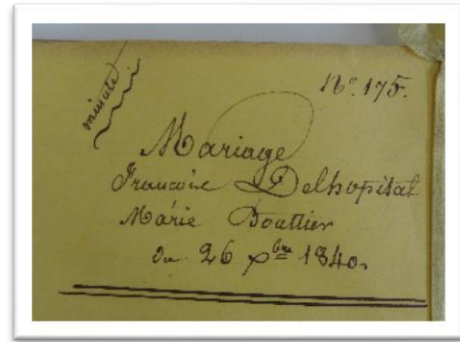 minute
N.º 175.
Mariage
Francoise Delhopital
Marie Bouttier
Du 26 xbre 1840.